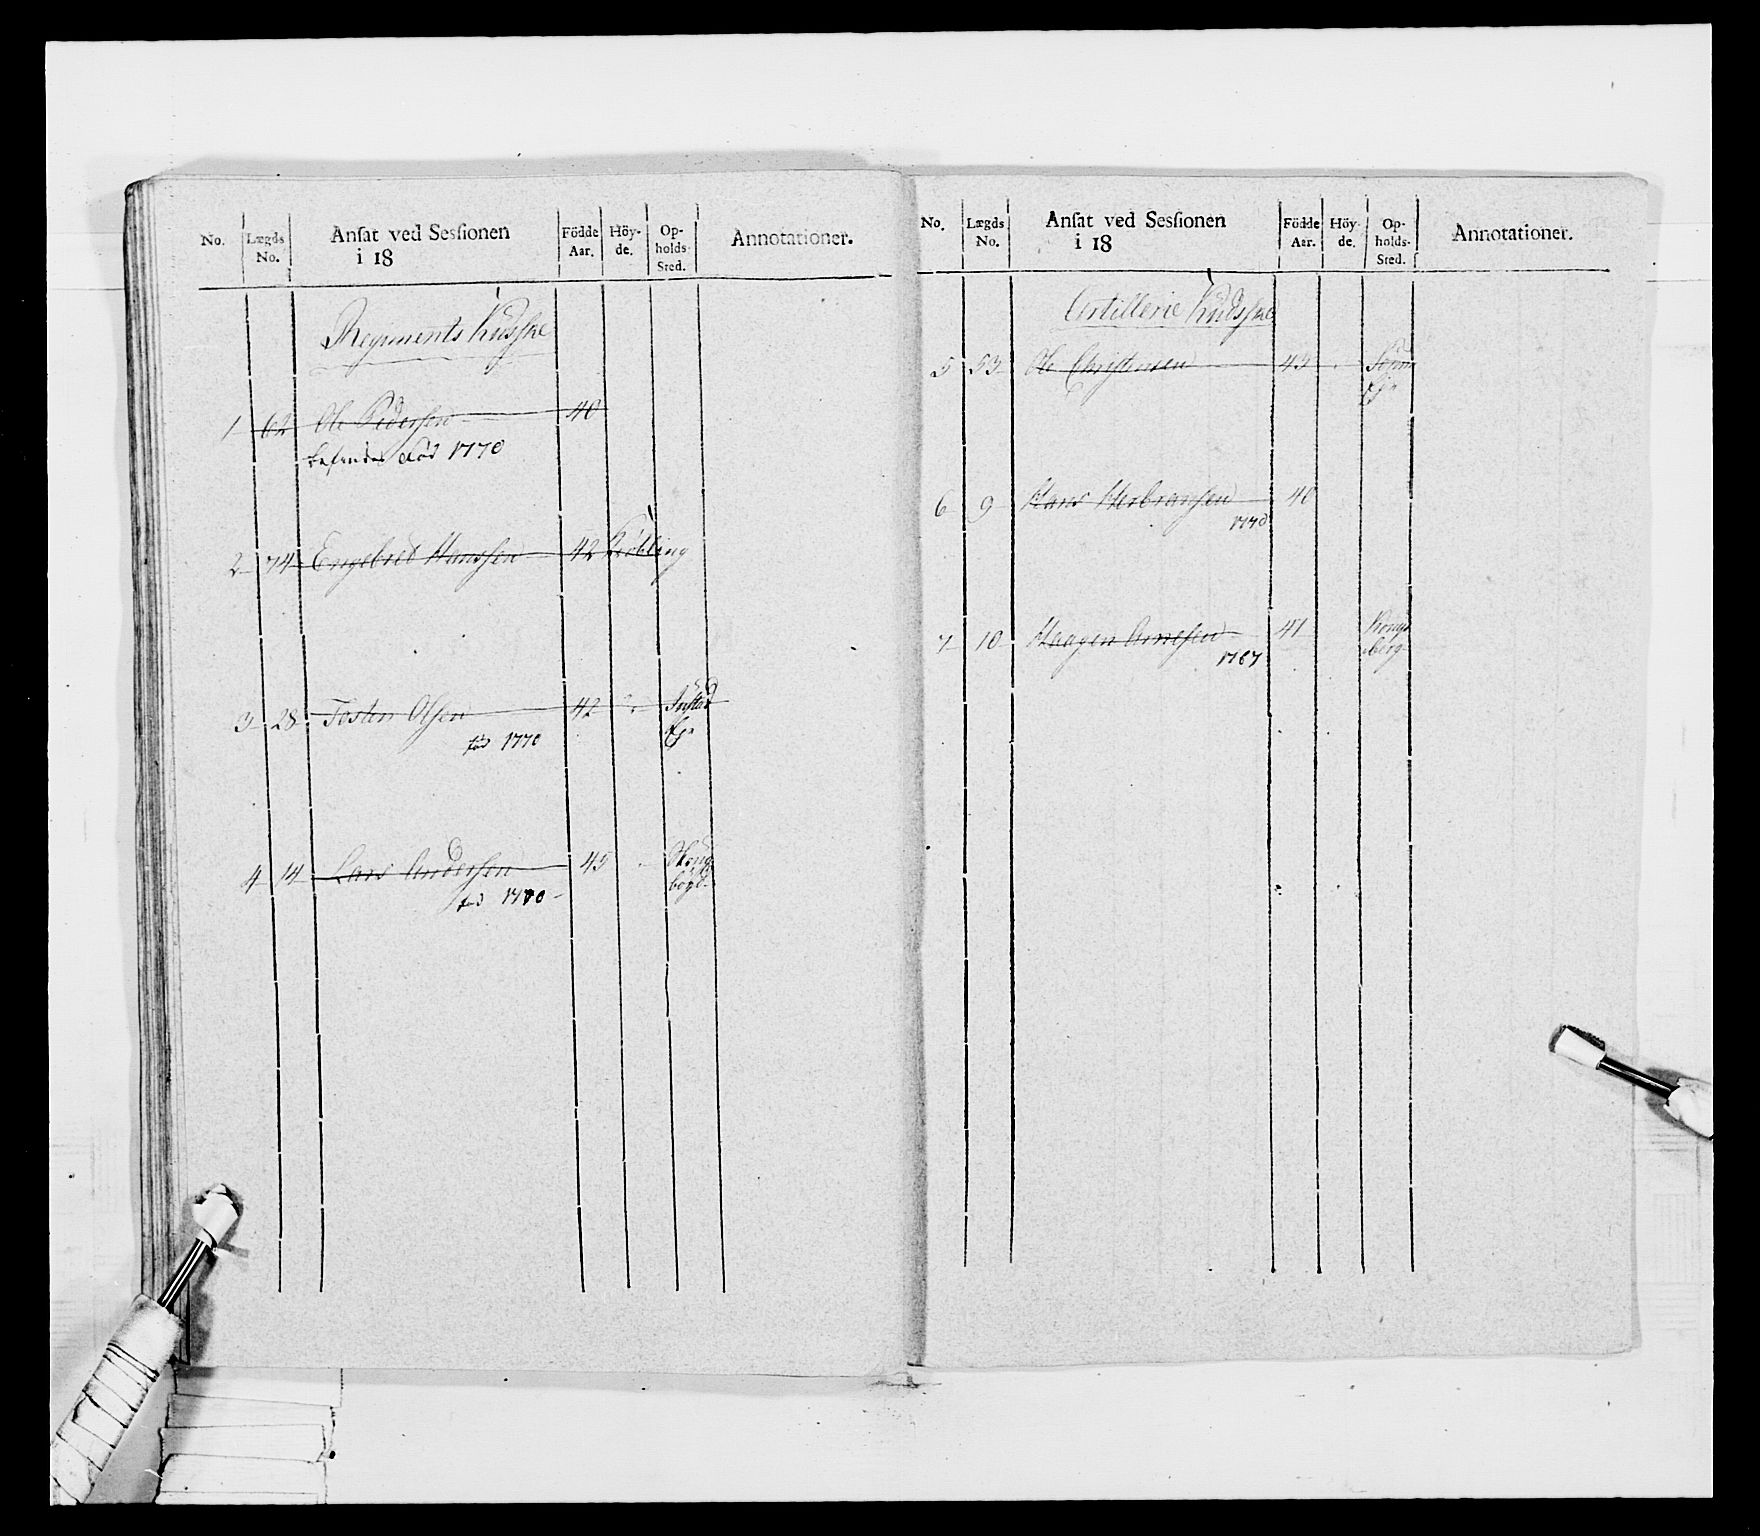 No. Lægds No. Ansat ved Sessionen i 18 Födde Aar. Höyde. Opholds Sted. Annotationer.
Regiments Kudske
1 62 Ole Pedersen 40
befindes død 1770
2 74 Engebret Hanssen 42 Krøbling
3 28 Tosten Olsen 42
fød 1770
4 14 Lars Andersen 45
fød 1770
No. Lægds No. Ansat ved Sessionen i 18 Födde Aar. Höyde. Opholds Sted. Annotationer.
Artillerie Kudske
5 53 Ole Christensen 45
6 9 Hans Herbransen 40
1770
7 10 Haagen Arnesen 41 Kongsberg
1767